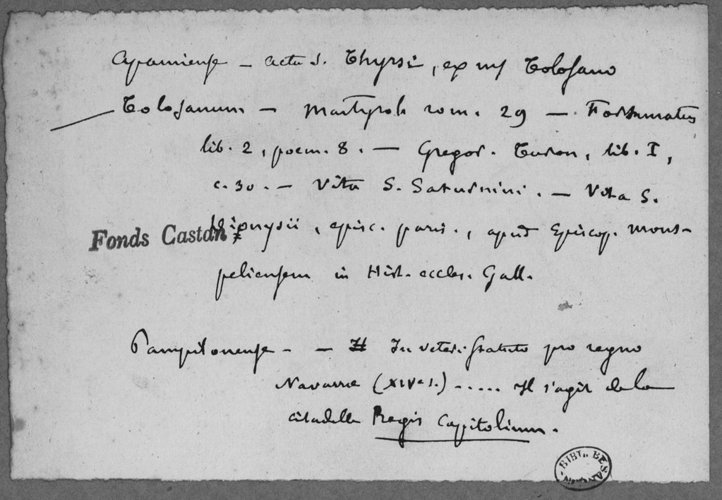 Apamiense – acta S. Thyrsi, ex ms Tolosano
Tolosanum – Martyrol. rom. 29 – Fortunatus
lib. 2, poem. 8. – Gregor. Turon, lib. I,
c. 30. – Vita S. Saturnini. – Vita S.
Dionysii, episc. paris., apud Episcop. mons-
Fonds Castan
peliensem in Hist. eccles. Gall.
Pampilonense – – In veteri statuto pro regno
Navarrae (XIVe s.) ..... Il s'agit de la
citadelle Regis Capitolium.
BIBL. DE